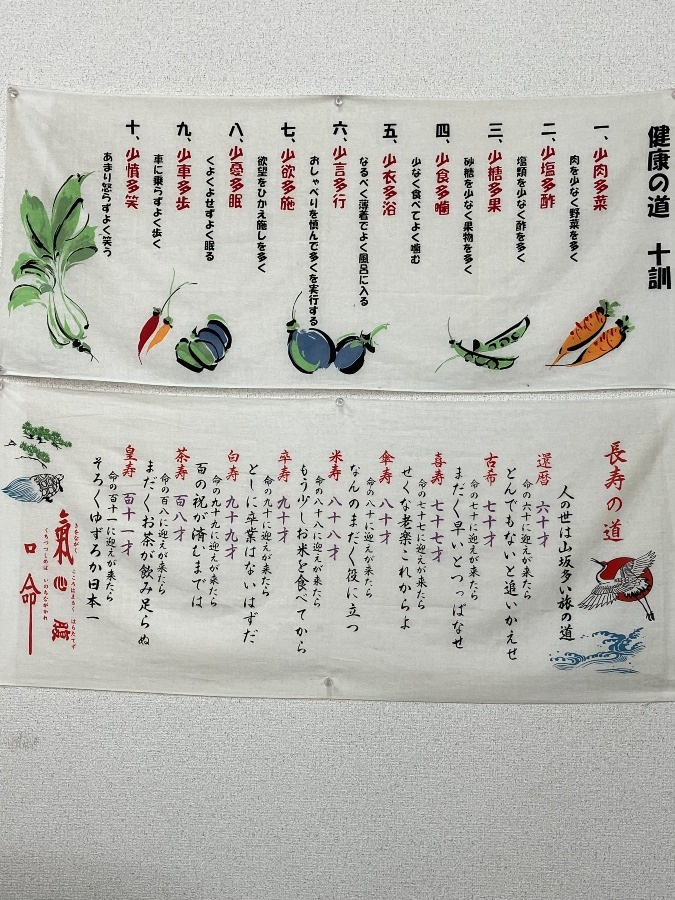 健康の道 十訓
一、少肉多菜
肉を少なく野菜を多く
二、少塩多酢
塩類を少なく酢を多く
三、少糖多果
砂糖を少なく果物を多く
四、少食多噛
少なく食べてよく噛む
五、少衣多浴
なるべく薄着でよく風呂に入る
六、少言多行
おしゃべりを慎んで多くを実行する
七、少欲多施
欲望をひかえ施しを多く
八、少憂多眠
くよくよせずよく眠る
九、少車多歩
車に乗らずよく歩く
十、少憤多笑
あまり怒らずよく笑う
長寿の道
人の世は山坂多い旅の道
還暦 六十才
命の六十に迎えが来たら
とんでもないと追いかえせ
古希 七十才
命の七十に迎えが来たら
まだまだ早いとつっぱなせ
喜寿 七十七才
命の七十七に迎えが来たら
せくな老楽これからよ
傘寿 八十才
命の八十に迎えが来たら
なんのまだまだ役に立つ
米寿 八十八才
命の八十八に迎えが来たら
もう少しお米を食べてから
卒寿 九十才
命の九十に迎えが来たら
としに卒業はないはずだ
白寿 九十九才
命の九十九に迎えが来たら
百の祝が済むまでは
茶寿 百八才
命の百八に迎えが来たら
まだまだお茶が飲み足らぬ
皇寿 百十一才
命の百十一に迎えが来たら
そろそろゆずろか日本一
氣 きをながく
心 こころはまるく
腹 はらたてず
口 くちつつしめば
命 いのちながかれ